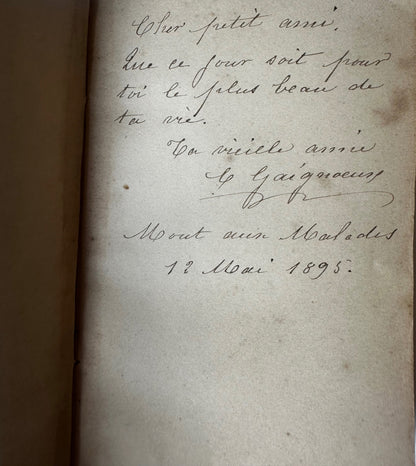 Cher petit ami.
Que ce jour soit pour
toi le plus beau de
ta vie.
Ta vieille amie
Mont aux Malades
12 Mai 1895.